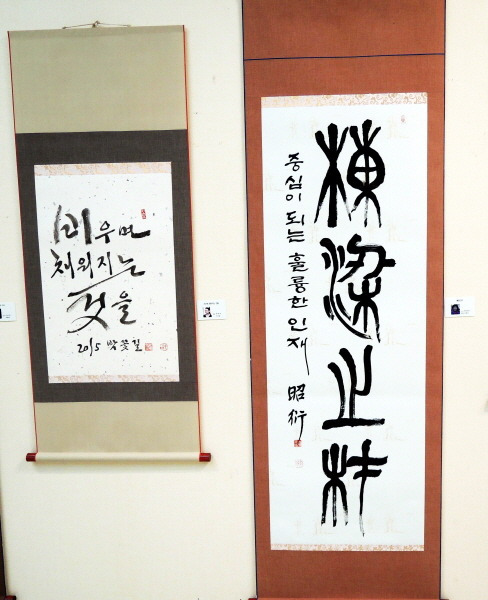 비우면
채워지는
것을
2015 방꽃길
棟梁之材
중심이 되는 훌륭한 인재
昭衍